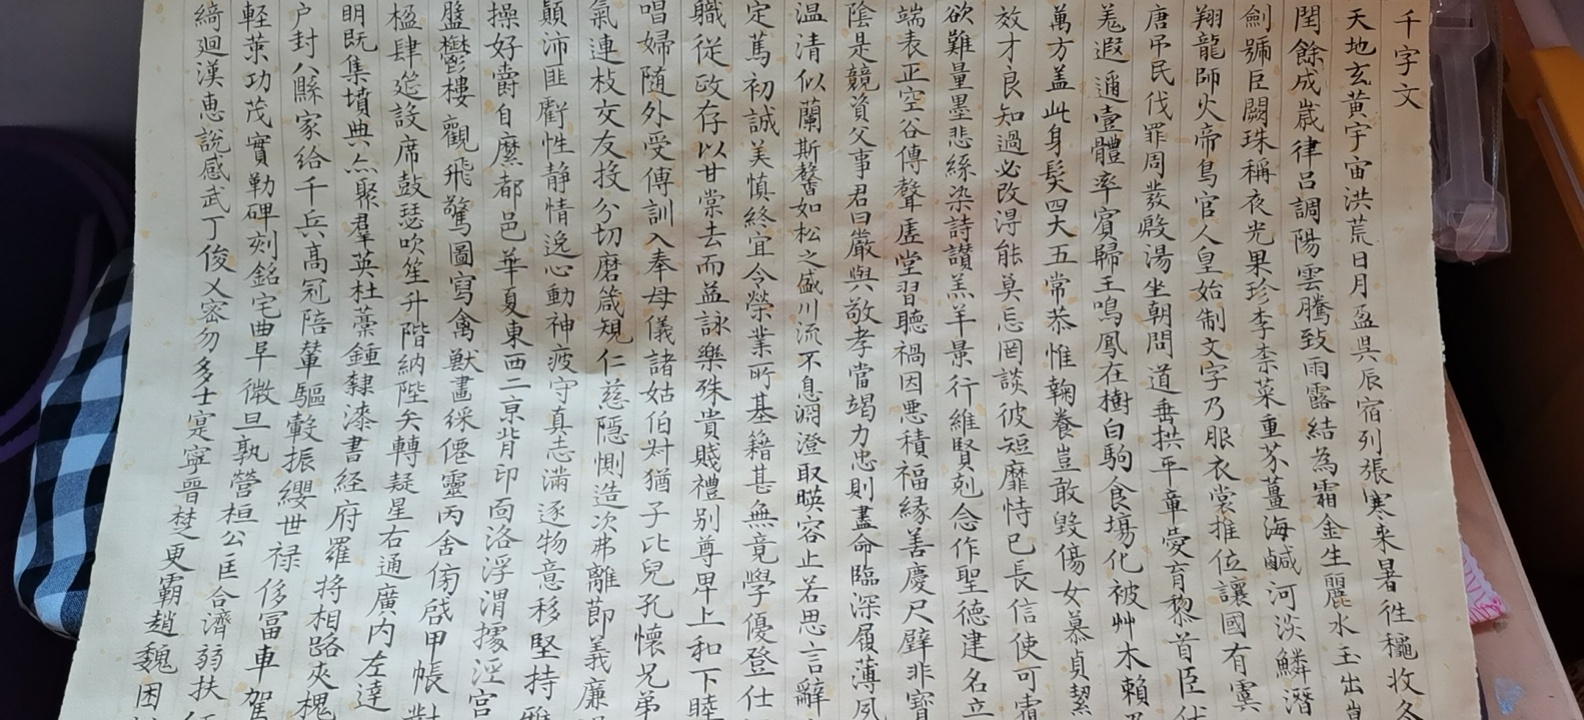 千字文
天地玄黃宇宙洪荒日月盈昃辰宿列張寒来暑徃穐收冬
閏餘成歲律呂調陽雲騰致雨露結為霜金生麗水玉出崑
劍號巨闕珠稱夜光果珍李柰菜重芥薑海鹹河淡鱗潛
翔龍師火帝鳥官人皇始制文字乃服衣裳推位讓國有虞
唐弔民伐罪周發殷湯坐朝問道垂拱平章愛育黎首臣伏
羌遐邇壹體率賓歸王鳴鳳在樹白駒食場化被艸木賴及
萬方盖此身髮四大五常恭惟鞠養豈敢毀傷女慕貞絜
效才良知過必改得能莫忘罔談彼短靡恃己長信使可覆
欲難量墨悲絲染詩讚羔羊景行維賢剋念作聖德建名立
端表正空谷傳聲虛堂習聽禍因悪積福緣善慶尺璧非寶
陰是競資父事君曰嚴與敬孝當竭力忠則盡命臨深履薄夙
温清似蘭斯馨如松之盛川流不息淵澄取暎容止若思言辭
定篤初誠美慎終宜令榮業所基籍甚無竟學優登仕
職從政存以甘棠去而益詠樂殊貴賤禮别尊卑上和下睦
唱婦隨外受傅訓入奉母儀諸姑伯叔猶子比兒孔懷兄弟
氣連枝交友投分切磨箴規仁慈隱惻造次弗離節義廉
顛沛匪虧性静情逸心動神疲守真志滿逐物意移堅持雅
操好爵自縻都邑華夏東西二京背邙面洛浮渭據涇宮
盤鬱樓觀飛驚圖寫禽獸畫綵僊靈丙舍傍啓甲帳對
楹肆筵設席鼓瑟吹笙升階納陛弁轉疑星右通廣内左達
明既集墳典亦聚羣英杜藁鍾隸漆書経府羅將相路夾槐
户封八縣家給千兵高冠陪輦驅轂振纓世禄侈富車駕
軽策功茂實勒碑刻銘宅曲阜微旦孰營桓公匡合濟弱扶
綺迴漢恵說感武丁俊乂密勿多士寔寧晉楚更霸趙魏困